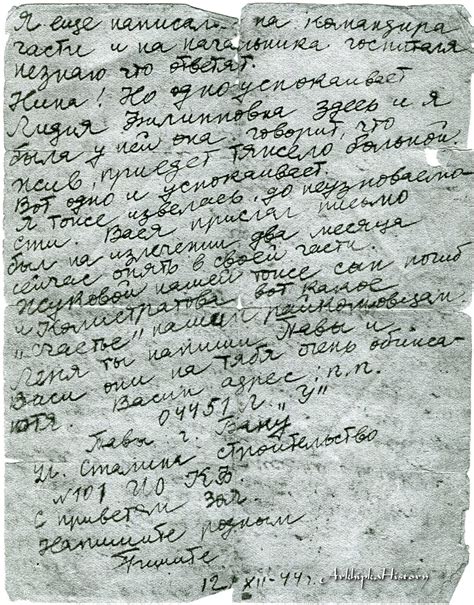 Я еще написала на командира
части и на начальника госпиталя
незнаю что ответят.
Нина! Но одно успокаивает
Лидия Филипповна здесь и я
была у ней она говорит, что
жив, приедет тяжело больной.
Вот одно и успокаивает.
Я тоже извелась до неузноваемо
сти. Вася прислал письмо
был на излечении два месяца
сейчас опять в своей части.
Жуковой нашей тоже сын погиб
и Калистратова вот какое
"счастье" нашим райкомовцам
Леня ты напиши Павы и
Васи они на тябя очень обижа-
ются. Васин адрес: п.п.
04451 Л. "У"
Павы г. Баку
И. Сталина строительство
№101 ИО КВ.
с приветом Зоя.
Напишите родным
Пишите
12. XII-44 г.
ArkhipkaHistory